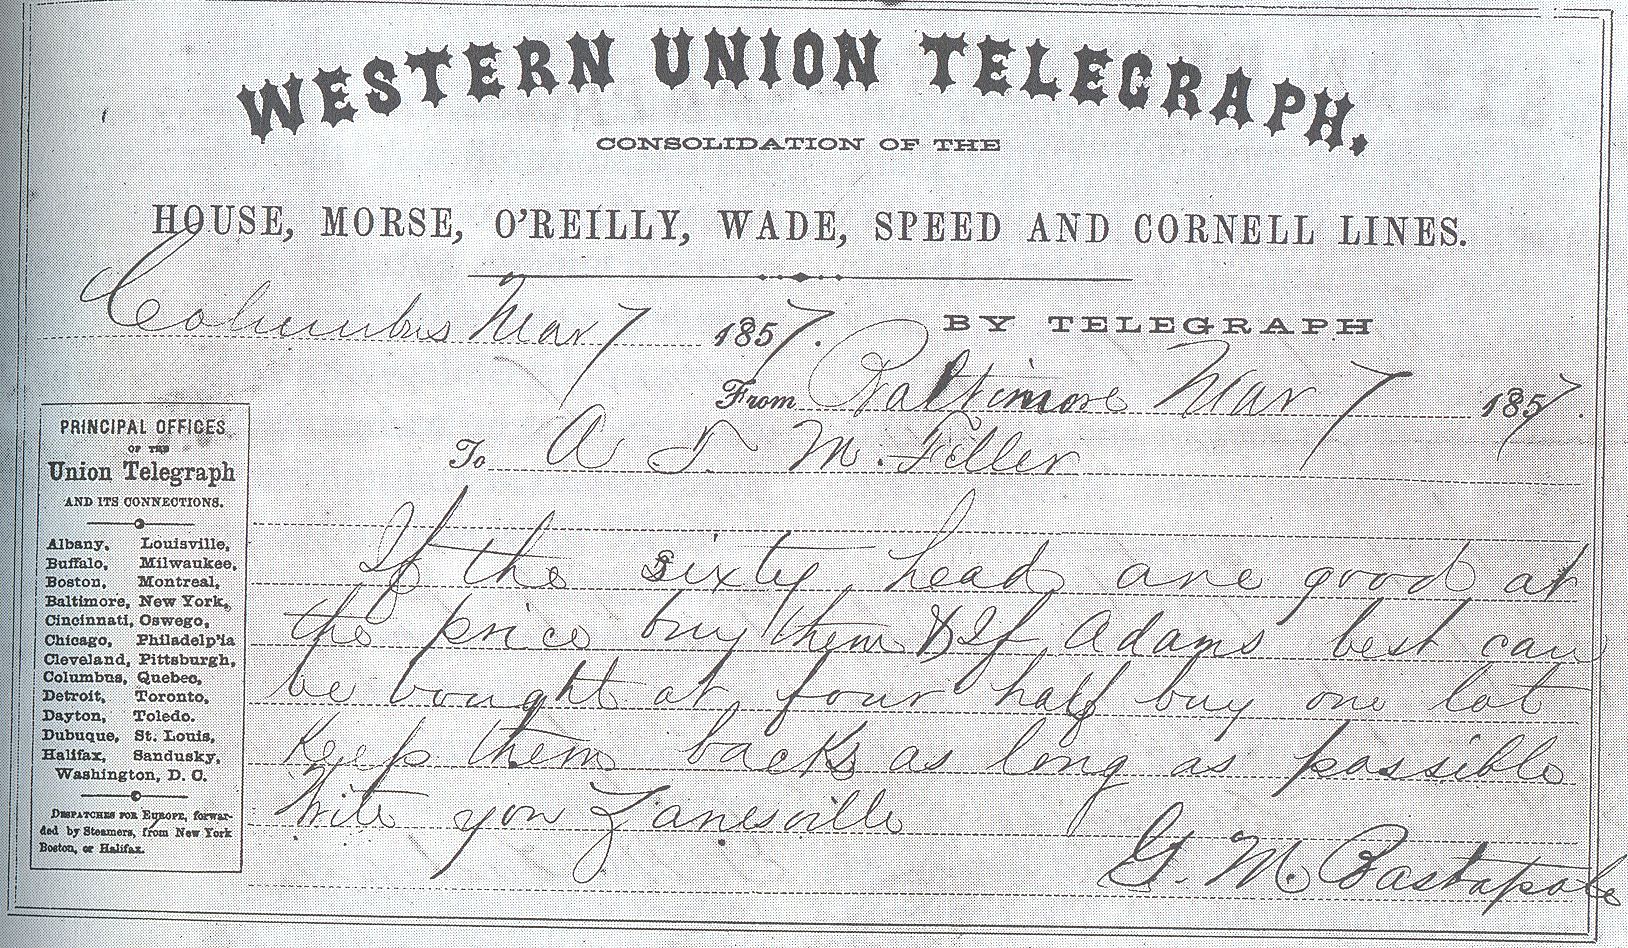 WESTERN UNION TELEGRAPH.
CONSOLIDATION OF THE
HOUSE, MORSE, O'REILLY, WADE, SPEED AND CORNELL LINES.
Columbus Mar 7 1857.
BY TELEGRAPH
From Baltimore Mar 7 1857.
To A T M. Filler
If the sixty head are good at
the price buy them & If Adams best can
be bought at four half buy one lot
Keep them backs as long as possible
Write you Zanesville
G. M.
PRINCIPAL OFFICES
OF THE
Union Telegraph
AND ITS CONNECTIONS.
Albany, Louisville,
Buffalo, Milwaukee,
Boston, Montreal,
Baltimore, New York,
Cincinnati, Oswego,
Chicago, Philadelp'ia
Cleveland, Pittsburgh,
Columbus, Quebec,
Detroit, Toronto,
Dayton, Toledo.
Dubuque, St. Louis,
Halifax, Sandusky,
Washington, D. C.
DESPATCHES FOR EUROPE, forwar-
ded by Steamers, from New York
Boston, or Halifax.